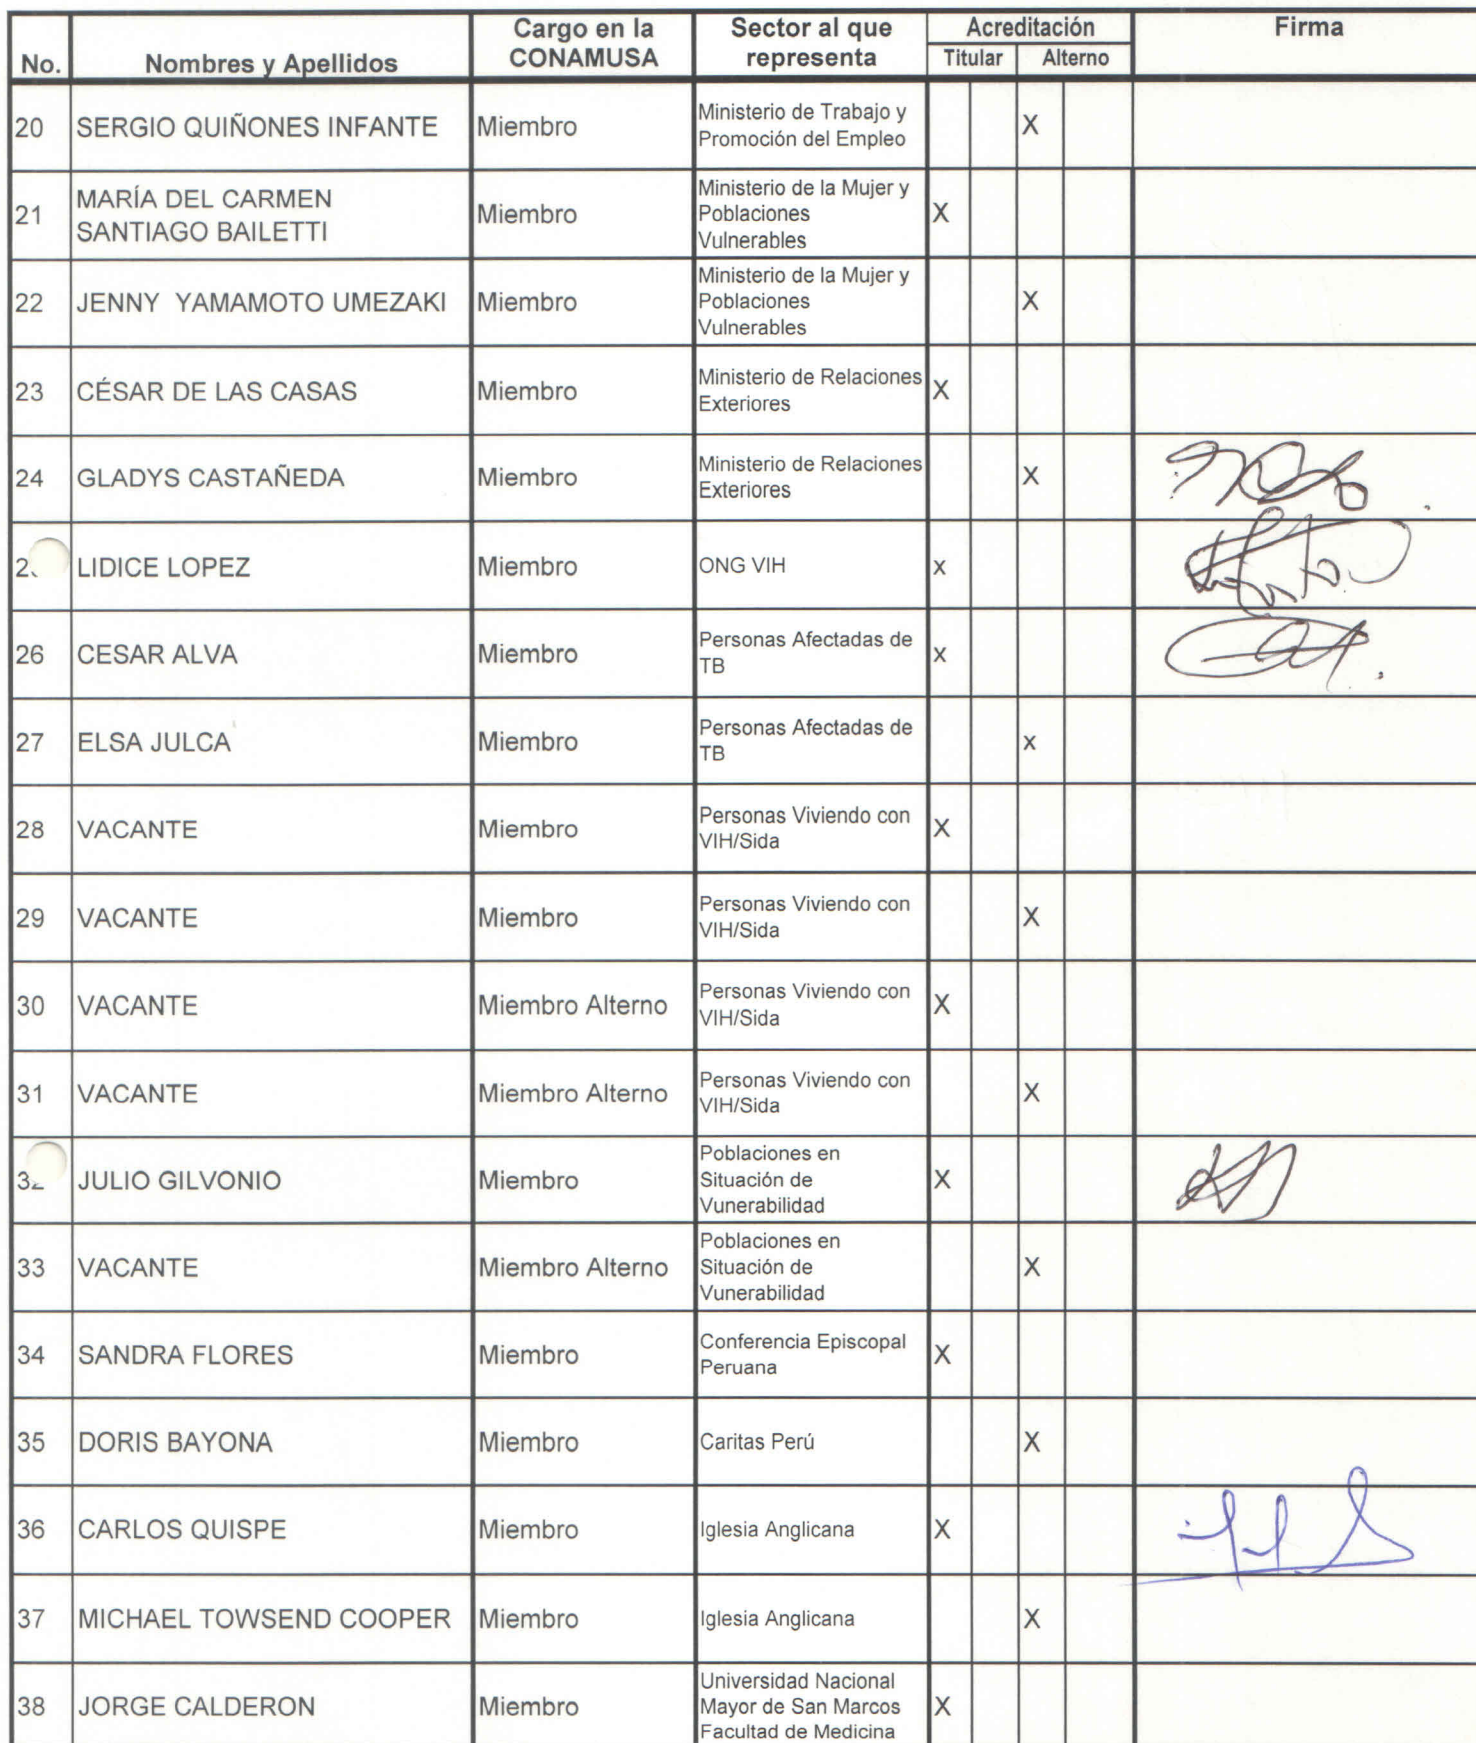 No. Nombres y Apellidos Cargo en la CONAMUSA Sector al que representa Acreditación Titular Alterno Firma
20 SERGIO QUIÑONES INFANTE Miembro Ministerio de Trabajo y Promoción del Empleo X
21 MARÍA DEL CARMEN SANTIAGO BAILETTI Miembro Ministerio de la Mujer y Poblaciones Vulnerables X
22 JENNY YAMAMOTO UMEZAKI Miembro Ministerio de la Mujer y Poblaciones Vulnerables X
23 CÉSAR DE LAS CASAS Miembro Ministerio de Relaciones Exteriores X
24 GLADYS CASTAÑEDA Miembro Ministerio de Relaciones Exteriores X
LIDICE LOPEZ Miembro ONG VIH x
26 CESAR ALVA Miembro Personas Afectadas de TB x
27 ELSA JULCA Miembro Personas Afectadas de TB x
28 VACANTE Miembro Personas Viviendo con VIH/Sida X
29 VACANTE Miembro Personas Viviendo con VIH/Sida X
30 VACANTE Miembro Alterno Personas Viviendo con VIH/Sida X
31 VACANTE Miembro Alterno Personas Viviendo con VIH/Sida X
32 JULIO GILVONIO Miembro Poblaciones en Situación de Vunerabilidad X
33 VACANTE Miembro Alterno Poblaciones en Situación de Vunerabilidad X
34 SANDRA FLORES Miembro Conferencia Episcopal Peruana X
35 DORIS BAYONA Miembro Caritas Perú X
36 CARLOS QUISPE Miembro Iglesia Anglicana X
37 MICHAEL TOWSEND COOPER Miembro Iglesia Anglicana X
38 JORGE CALDERON Miembro Universidad Nacional Mayor de San Marcos Facultad de Medicina X